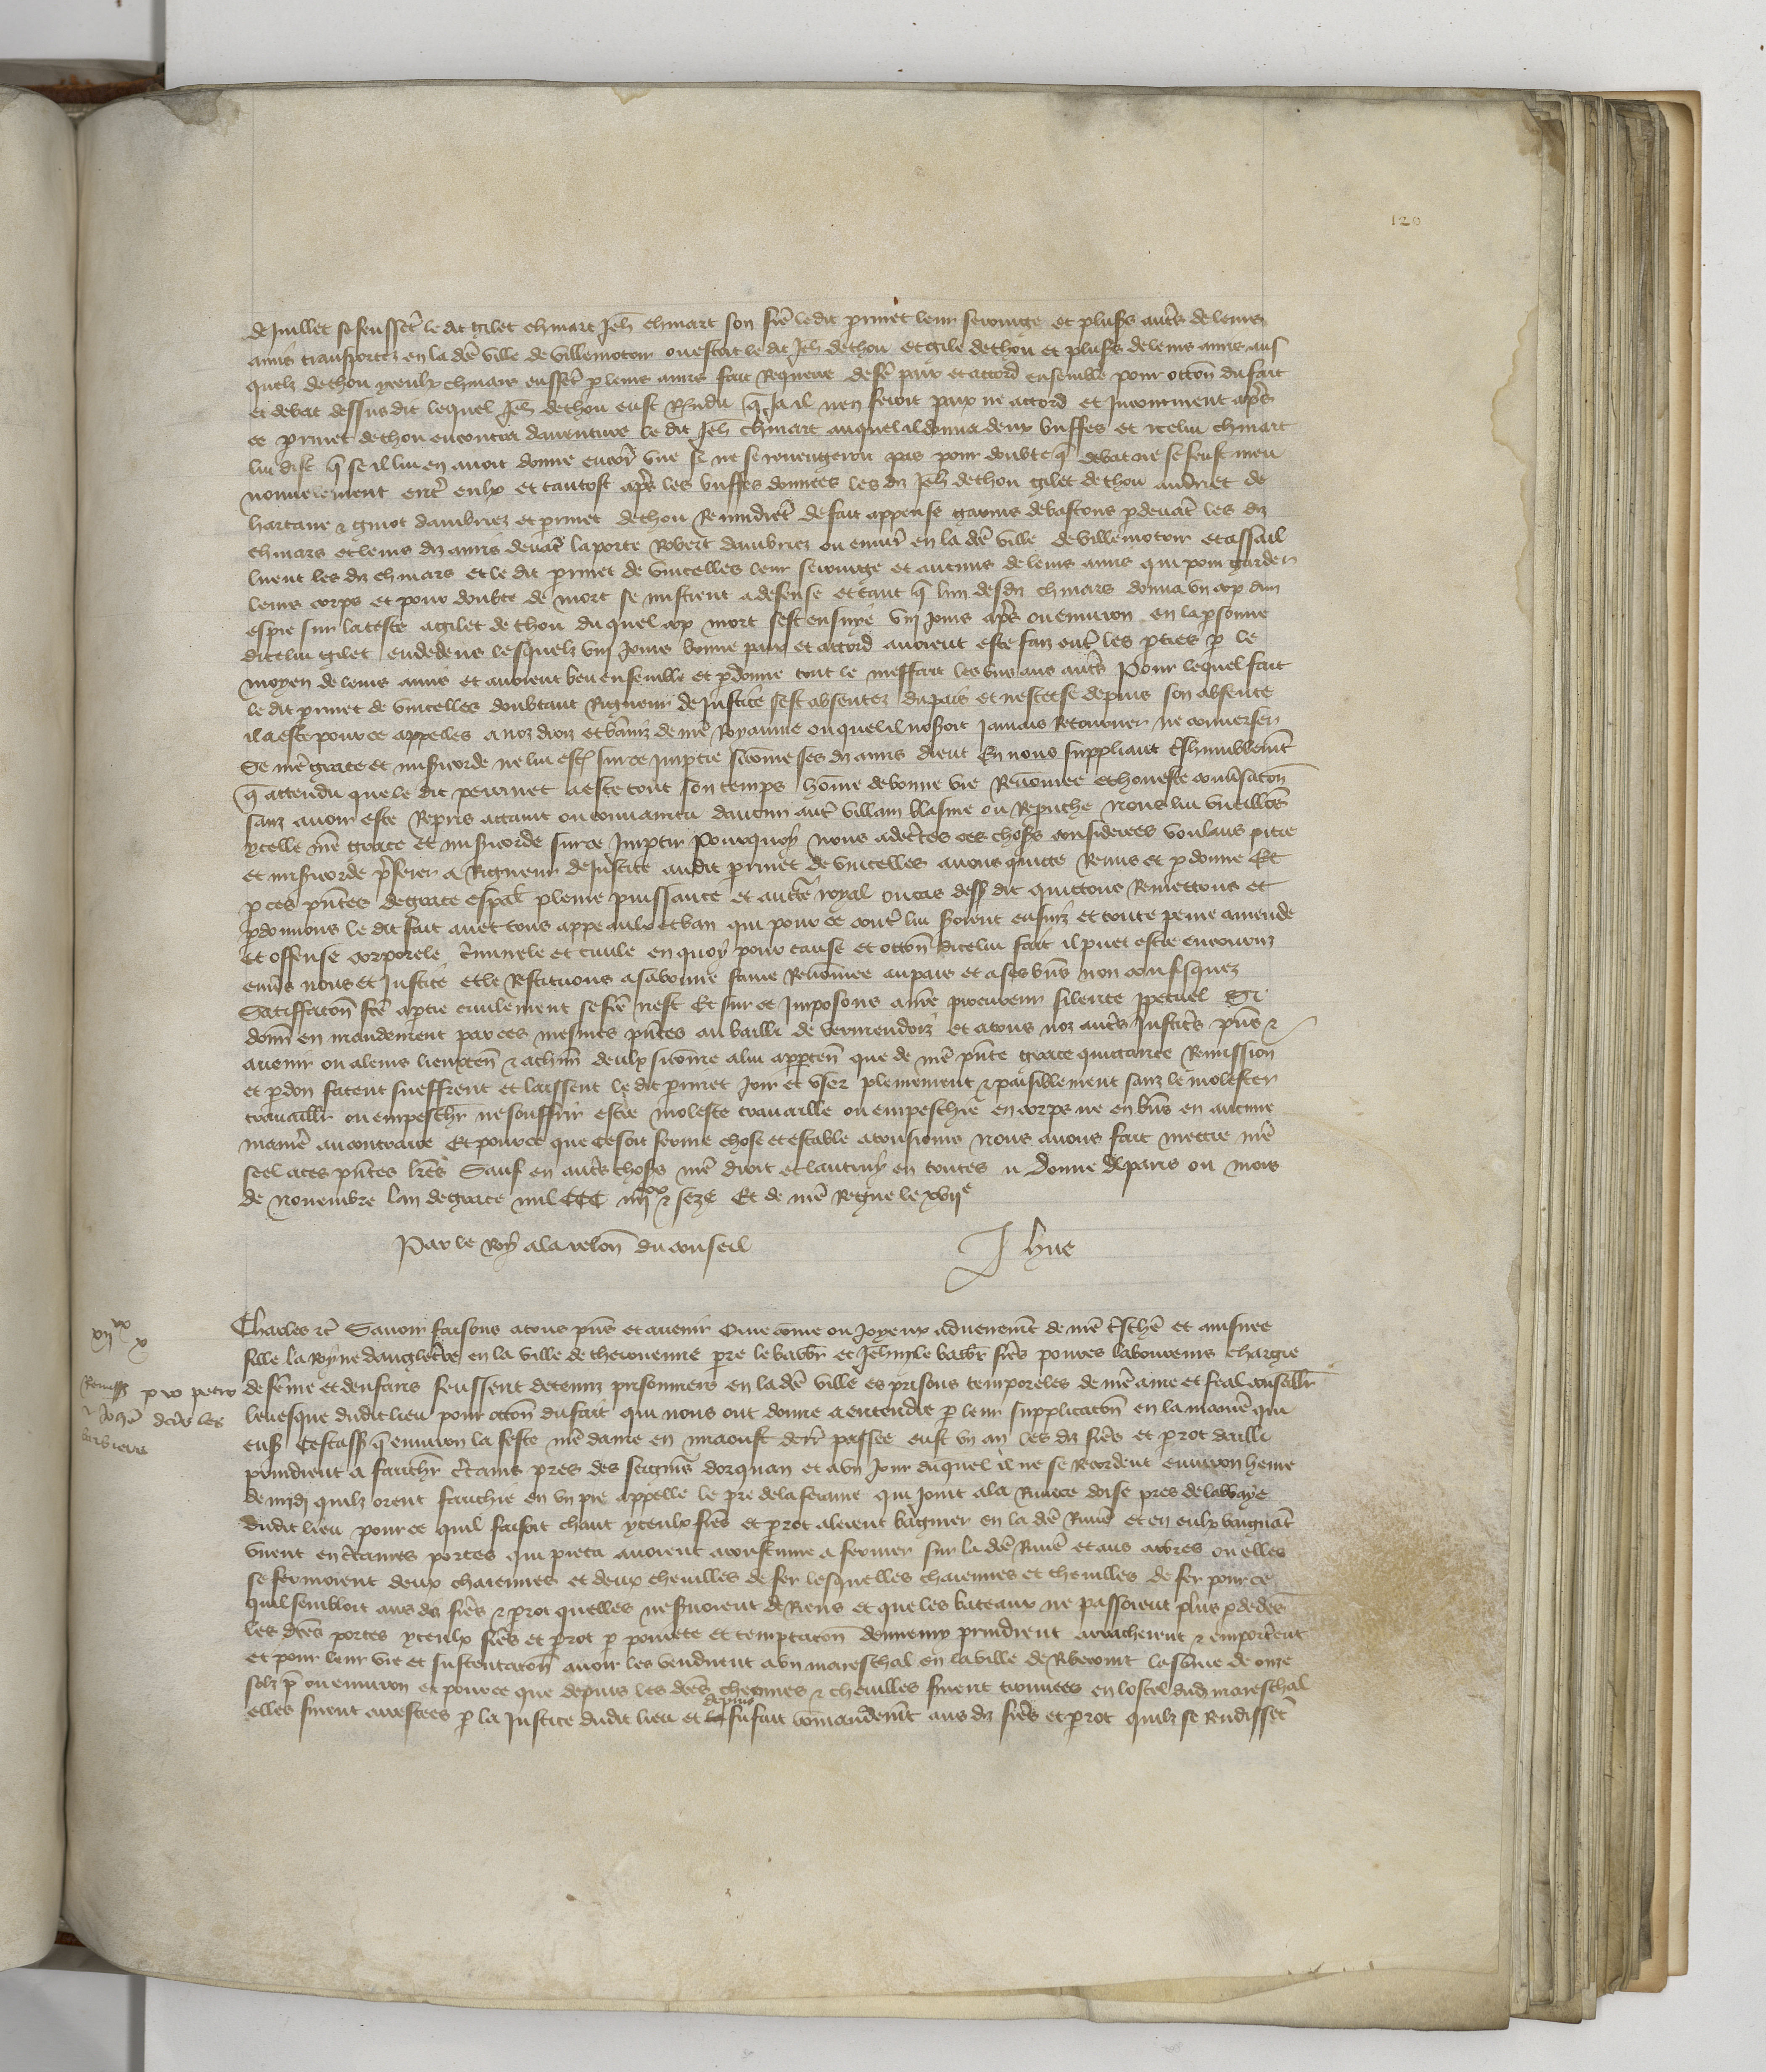 120
de Juillet se feussēt le dit gilet chmart Jeh̄ chmart son frē ledit p̄rinet leur serourge et plusrs aut̄s de leurs
amis transportez en la dc̄e ville de villemotoir ou estoit le dit Jeh̄ dethou et gile dethou et plusrs de leurs amis aus
quelz dethou yceulx chmars eussēt p leurs amis fait Requerre de fē paix et accord ensemble pour occōn du fait
et debat dessusdit lequel Jeh̄ dethou eust Rn̄du q̄ Ja il nen feroit paix ne accord et Incontinent ap̄s
ce p̄rinet dethou encontra daventure le dit Jeh̄ chmart auquel il donna deux buffes et icelui chmart
lui dist q̄ se il lui en avoit donne encor̄ une se ne se revengeroit pas pour doubte q̄ debat ne se feust meu
nouvelement ent̄ eulx et tantost ap̄s les buffes donnees les dz Jeh̄ dethou gilet dethou andriet de
hartane & guiot dambriez et p̄rinet dethou Revindrēt de fait appense garnis de bastons p devāt les dz
chmars et leurs dz amis devāt la porte Robert dambriez ou envir̄ en la dc̄e ville de villemotoir et assail
lirent les dz chmars et le dit p̄rinet de vincelles leur serourge et aucuns de leurs amis qui pour garder
leurs corps et pour doubte de mort se mistrent a defense et tant q̄ lun desdz chmars donna un cop dun
espie sur la teste a gilet de thou du quel cop mort sest ensuye viij jours ap̄s ou environ en la psonne
dicelui gilet en dedens lesquelz viij Jours bonne paix et accord avoient este faiz ent̄ les pties p le
moyen de leurs amis et avoient beu ensemble et pdonne tout le meffait les uns aus aut̄s Pour lequel fait
le dit p̄rinet de vincelles doubtant Rigueur de Justice sest absentez du pais et
il a este pour ce appelles a noz droiz et bānīz de nrē Royaume ou quel il noseroit Jamais Retourner ne converser
Se nrē grace et misericorde ne lui est sur ce Imptie sicōme ses dz amis dient En nous suppliant t̄shumblemēt
q̄ attendu que le dit perrinet a este tout son temps hōme de bonne vie Renōmee et honeste conv̄sacōn
sanz avoir este Repris actaint ou convaincu daucun aut̄ villain blasme ou Reprouche nous lui vueilliōs
ycelle nrē grace et misericorde sur ce Imptir Pourquoy nous adc̄ētes ces choses considerees voulans pitie
et misericorde p̄ferer a Rigueur de Justice audit p̄rinet de vincelles avons quitte Remis et pdonne Et
p ces p̄ntes de grace esp̄al pleine puissance et auct̄e royal ou cas dess dit quittons Remettons et
pdonnons le dit fait avec tous appeaulx et ban qui pour ce cont̄ lui seroient ensuiz et toute peine amende
et offense corporele c̄minele et civile en quoy pour cause et occōn dicelui fait il puet estre encouruz
env̄s nous et Justice et le Restituons a sa bonne fame Renōmee au pais et a ses biens non confisquez
Satiffacōn fcē a ptie civilement se fcē nest Et sur ce Imposons a nrē procureur silence ppetuel Si
donn̄ en mandement par ces mesmes p̄ntes au bailli de vermendoiz et a tous noz aut̄s Justic̄s p̄ns &
avenir ou a leurs lieuxten̄ & a chūn deulx sicōme a lui apptend̄ que de nrē p̄nte grace quittance Remission
et pdon facent sueffrent et laissent le dit p̄rinet Joir et user plainement & paisiblement sanz le molester
travaillr̄ ou empeschr̄ ne souffrir estre moleste travaille ou empeschie en corps ne en biens en aucune
manier̄ au contraire Et pour ce que ce soit ferme chose et estable a tousjours Nous avons fait mettre nrē
seel a ces p̄ntes lrēs Sauf en aut̄s choses nrē droit et lautruy en toutes Donne a paris ou mois
de Novembre lan de grace mil CCC iiijxx & seze Et de nrē Regne le xvije
Par le Roy a la relacōn du conseil Jhue
xijxx x
Remiss̄ p ro petro
& Joh̄e dc̄is les
barbiers
Charles etc̄ Savoir faisons a tous p̄ns et avenir Que cōme ou Joyeux advenemēt de nrē t̄schē et ainsnee
fille la Royne dangleterre en la ville de therouenne p̄re le et Jehin le frēs povres laboureurs chargie
de fēme et denfans feussent detenuz prisonniers en la dc̄e ville es prisons temporeles de nrē ame et feal conseillr̄
levesque dudit lieu pour occōn du fait qui nous ont donne a entendre p leur supplicacōn en la manier̄ qui
ensuit Cestass̄ q̄ environ la feste nrē dame en miaoust derr̄ passee eust un an les dz frēs et p̄rot dailli
prindrent a fauchr̄ c̄tains prez des seigneurs dorquan et a un Jour duquel il ne se Recordent environ heure
de midj quilz orent fauchie en un pre appelle le pre de la ferame qui Joint a la Riviere doise pres de labbaye
dudit lieu pour ce quil faisoit chaut yceulx frēs et p̄rot alerent baignier en la dc̄e Riviē et en eulx baignāt
virent en c̄taines portes qui pieca avoient acoustume a fermer sur la dc̄e Riviē et aus ou elles
se fermoient deux chaiennes et deux chevilles de fer lesquelles chaiennes et chevilles de fer pour ce
quil sembloit aus dz frēs & p̄rot quelles ne servoient de Riens et que les bateaux ne passoient plus p dedēs
les dc̄es portes yceulx frēs et p̄rot p povrete et temptacōn dennemy prindrent arracherent & emportēent
et pour leur vie et sustentacōn avoir les vendirent a un mareschal en la ville de Ribemont la sōme de onze
solz p̄ ou environ et pour ce que depuis les dc̄es chaiennes & chevilles furent trouvees en lostel dudz mareschal
elles furent arrestees p la Justice dudit lieu et depuis fu fait cōmandemēt aus dz frēs et p̄rot quilz se Rendissēt